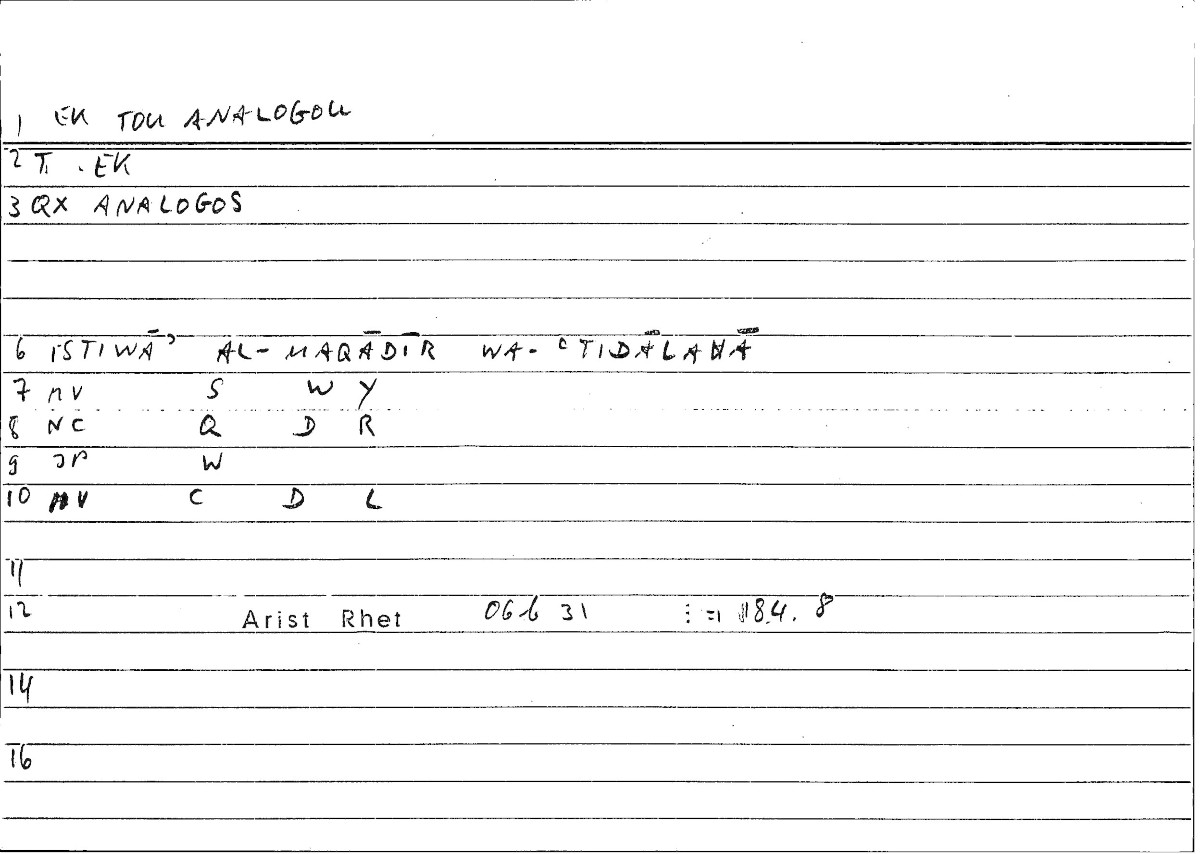 1 EK TOU ANALOGOU
2 T . EK
3 QX ANALOGOS
6 ISTIWĀʾ AL-MAQĀDĪR WA-ʿTIDĀLAHĀ
7 NV S W Y
8 NC Q D R
9 JP W
10 NV C D L
11
12 Arist Rhet 06b 31 := 184. 8
14
16